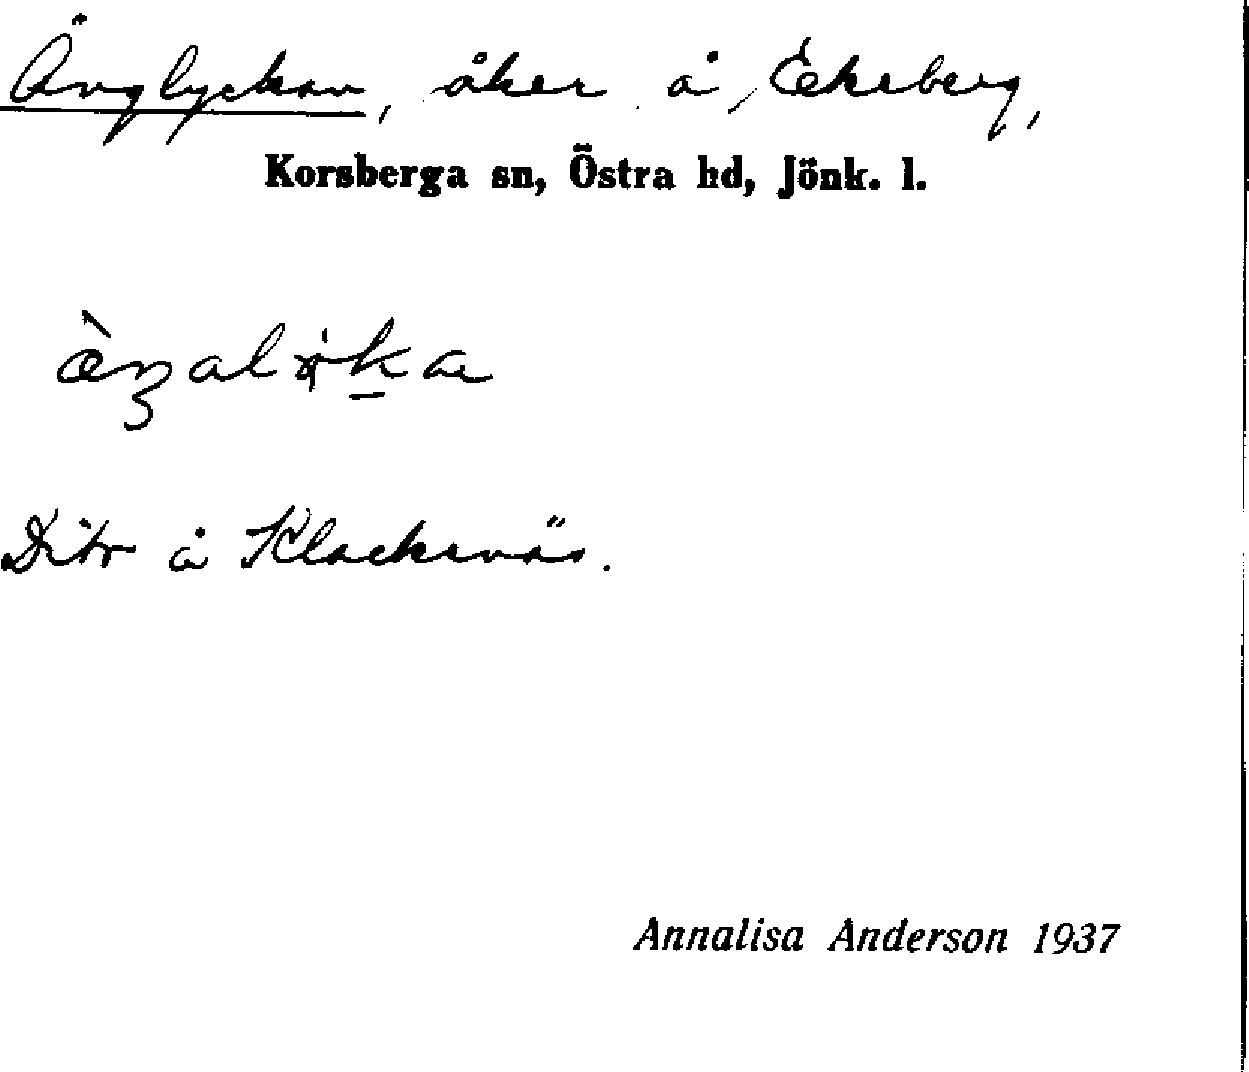 Änglyckan, åker å Ekeberg,
Korsberga sn, Östra hd, Jönk. l.
Dito å Klackenäs.
Annalisa Anderson 1937